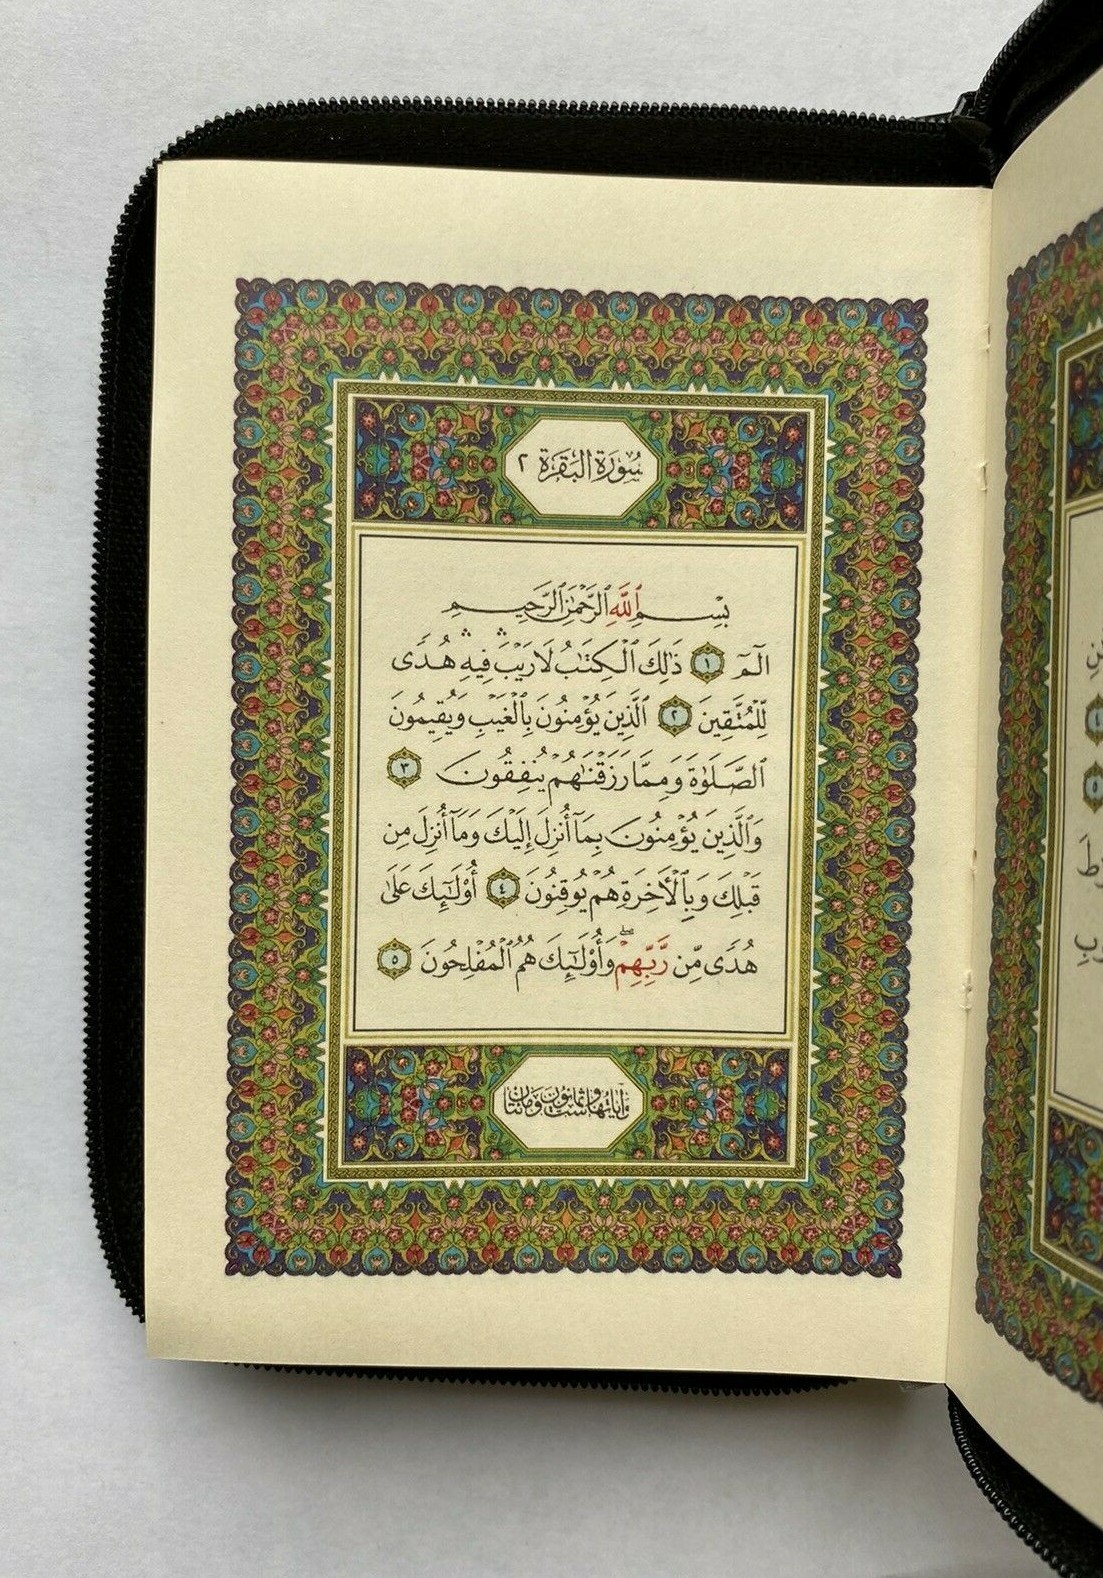 سُورَةُ البَقَرَةِ ٢
بِسْمِ ٱللَّهِ ٱلرَّحْمَٰنِ ٱلرَّحِيمِ
الٓمٓ ١ ذَٰلِكَ ٱلْكِتَٰبُ لَا رَيْبَ ۛ فِيهِ ۛ هُدًى
لِّلْمُتَّقِينَ ٢ ٱلَّذِينَ يُؤْمِنُونَ بِٱلْغَيْبِ وَيُقِيمُونَ
ٱلصَّلَوٰةَ وَمِمَّا رَزَقْنَٰهُمْ يُنفِقُونَ ٣
وَٱلَّذِينَ يُؤْمِنُونَ بِمَآ أُنزِلَ إِلَيْكَ وَمَآ أُنزِلَ مِن
قَبْلِكَ وَبِٱلْأَخِرَةِ هُمْ يُوقِنُونَ ٤ أُو۟لَٰٓئِكَ عَلَىٰ
هُدًى مِّن رَّبِّهِمْ ۖ وَأُو۟لَٰٓئِكَ هُمُ ٱلْمُفْلِحُونَ ٥
وَآيَاتُهَا سِتٌّ وَثَمَانُونَ وَمِائَتَانِ
ٰطَ
٤
٥